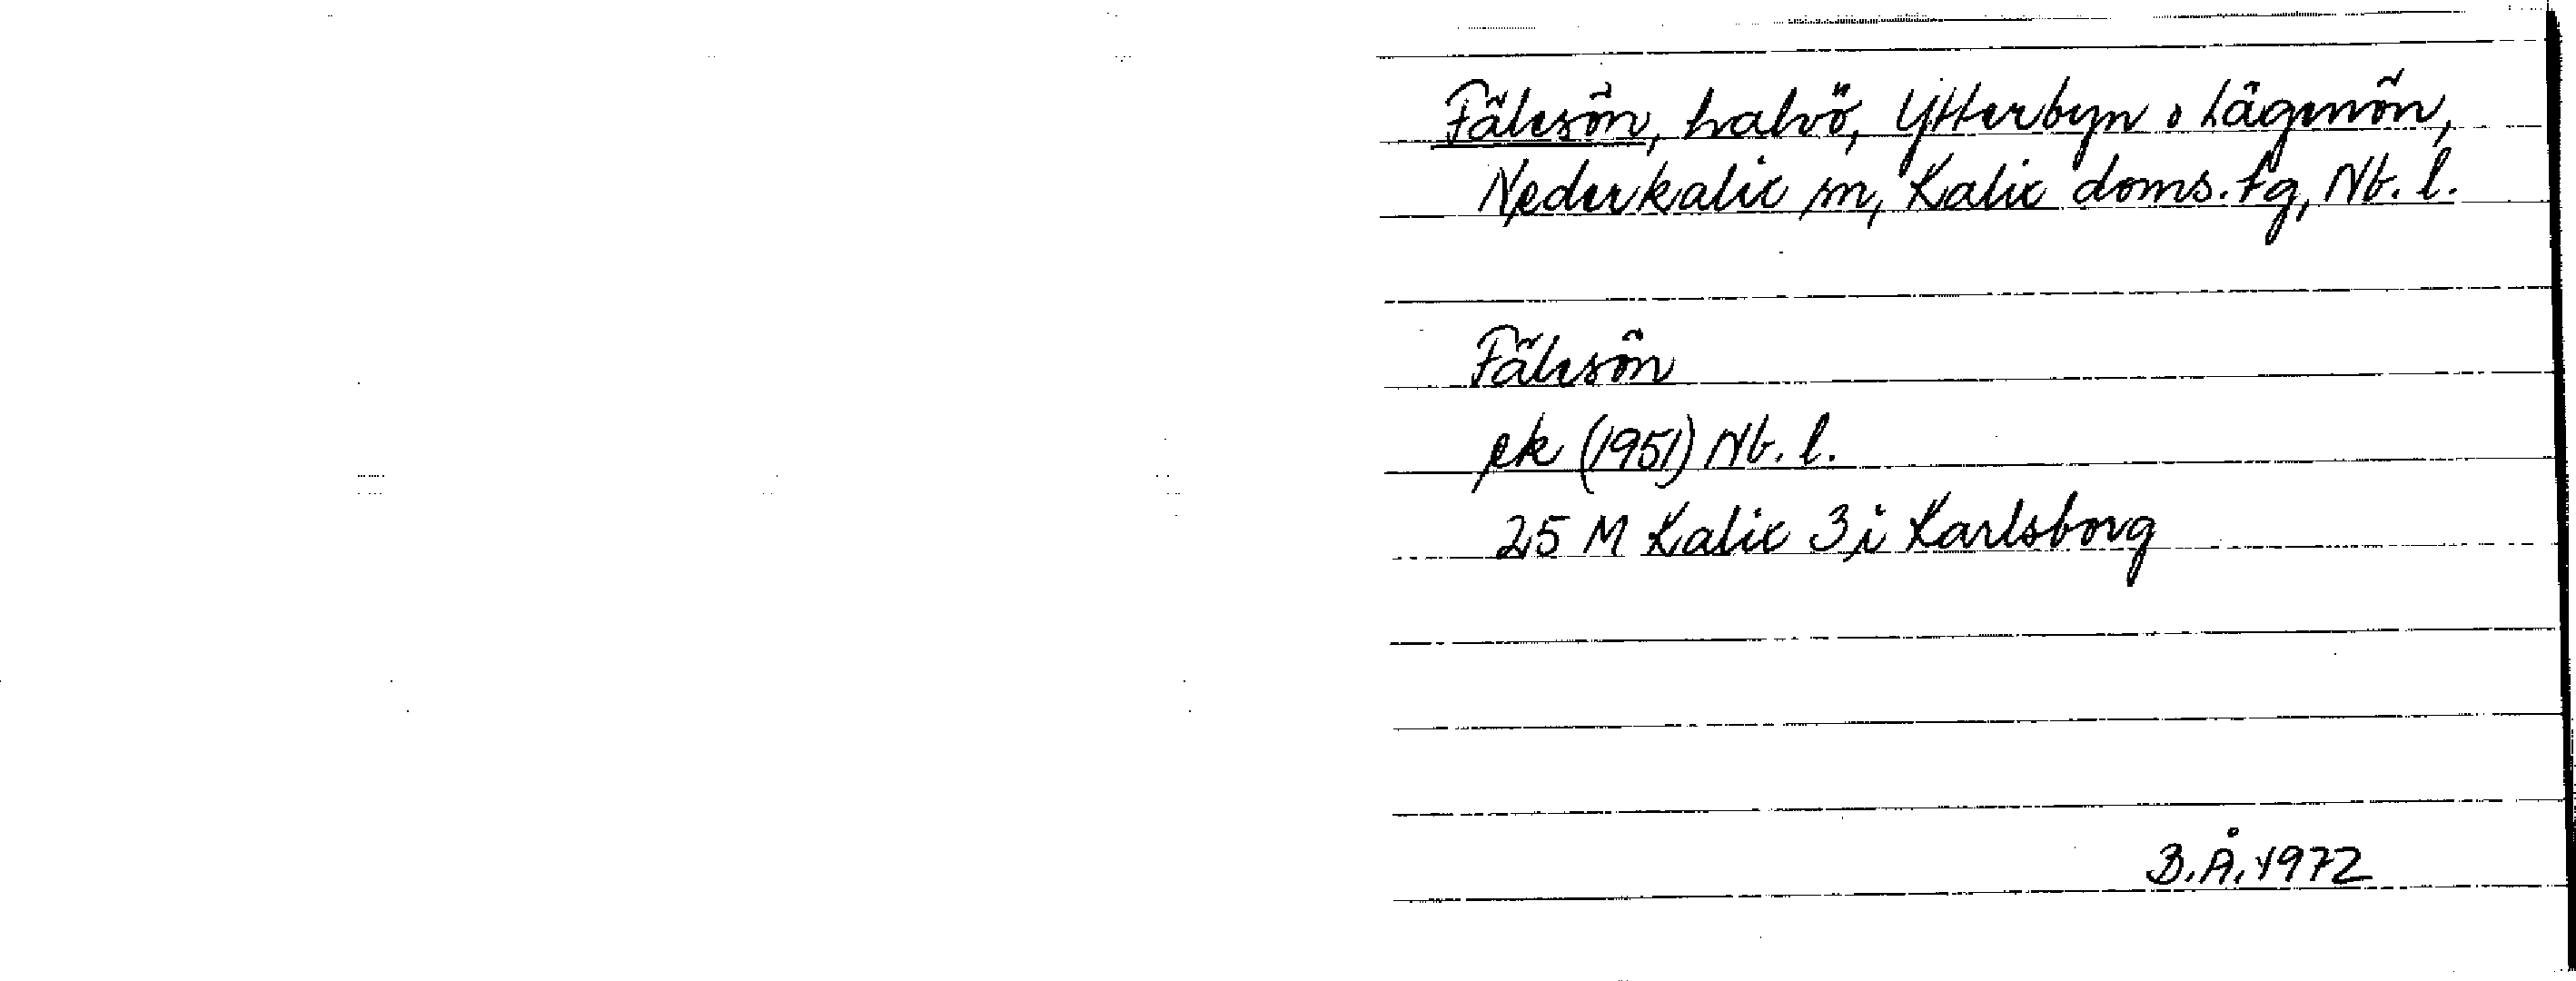 Fälesön, halvö, Ytterbyn o Lågmön,
Nederkalix sn, Kalix doms. tg, Nb. l.
Fälesön
ek (1951) Nb. l.
25 M Kalix 3 i Karlsborg
B.Å. 1972